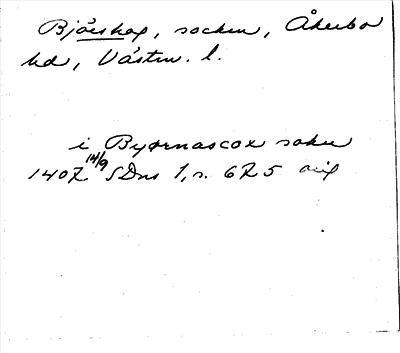 Björskog, socken, Åkerbo
hd, Västm. l.
i Byørnascox sokn
1407 14/9 SDns 1, s. 625 avig